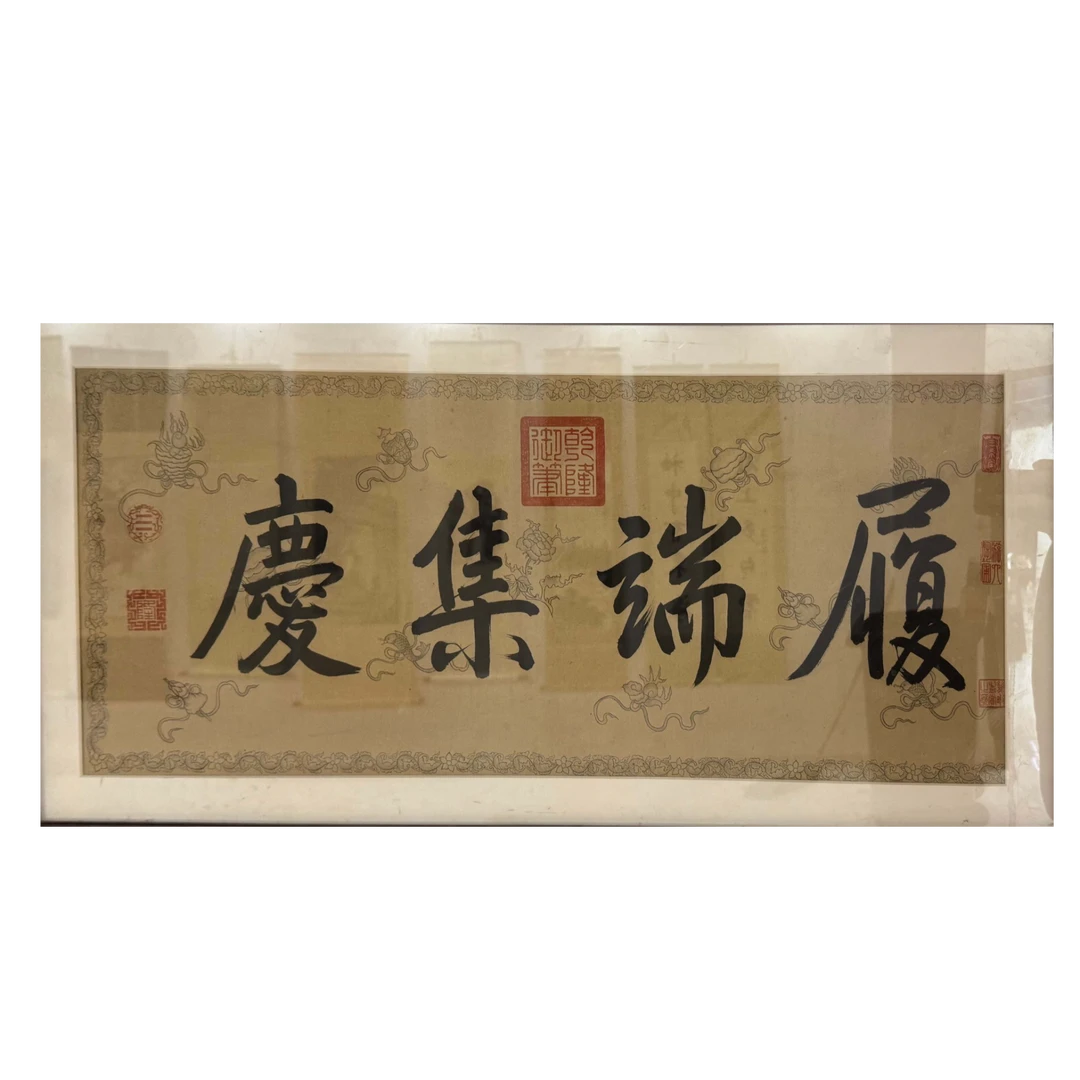 履端集慶
乾隆御筆